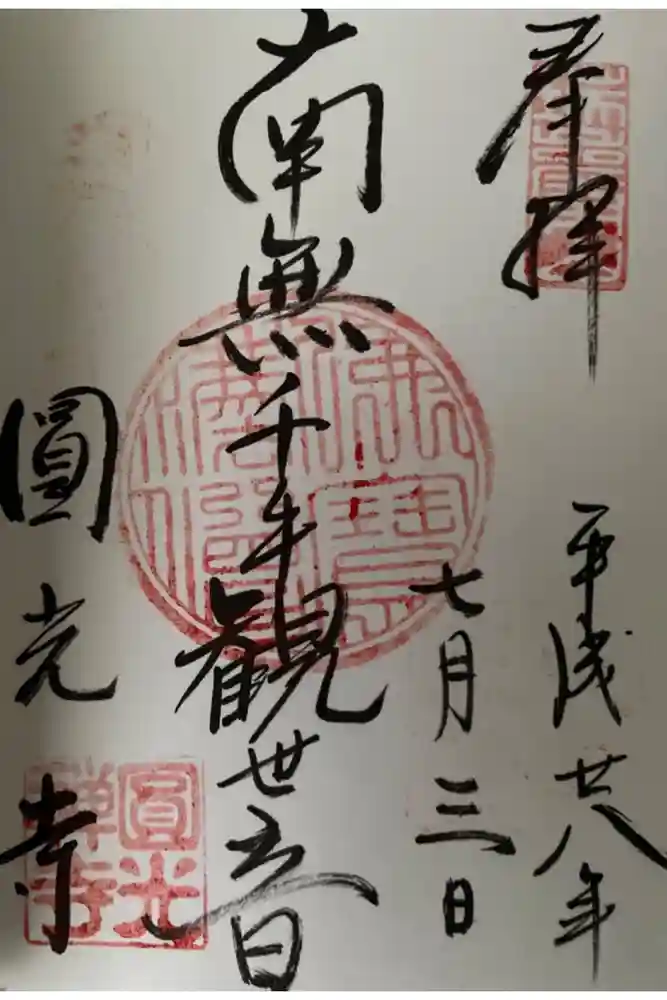 奉拝
平成廿八年
七月三日
南無千手観世音
圓光寺
佛法僧寶
圓光禅寺